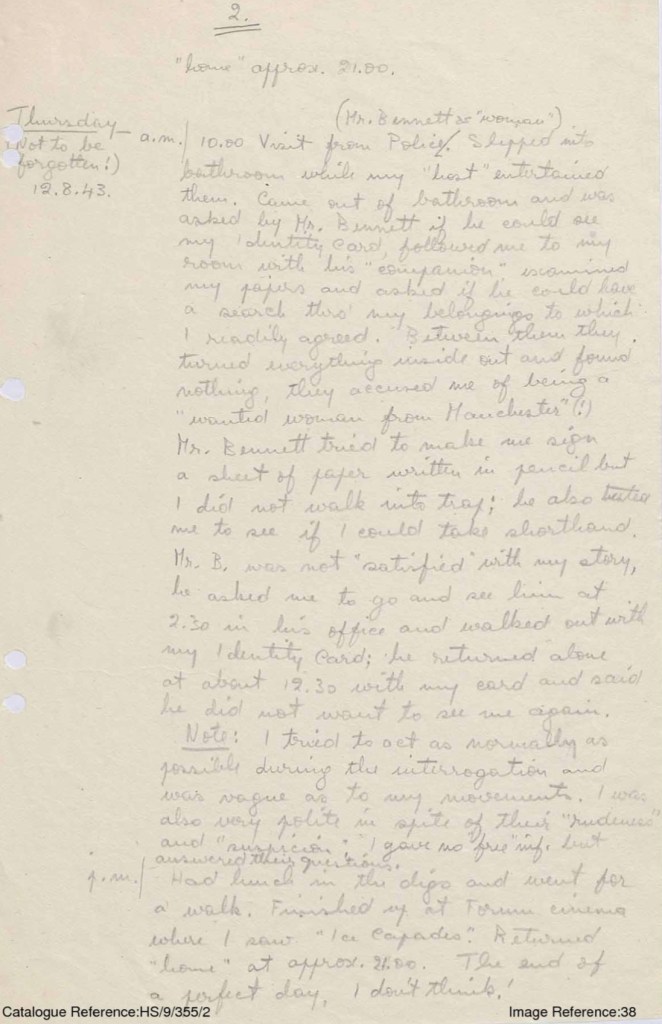 2.
"home" approx. 21.00.
Thursday — a.m./ (Mr. Bennett & "woman")
(Not to be 10.00 Visit from Police. Slipped into
forgotten!) bathroom while my "host" entertained
12.8.43. them. Came out of bathroom and was
asked by Mr. Bennett if he could see
my Identity Card, followed me to my
room with his "companion" examined
my papers and asked if he could have
a search thro' my belongings to which
I readily agreed. Between them they
turned everything inside out and found
nothing, they accused me of being a
"wanted woman from Manchester" (!)
Mr. Bennett tried to make me sign
a sheet of paper written in pencil but
I did not walk into trap; he also tested
me to see if I could take shorthand.
Mr. B. was not "satisfied" with my story,
he asked me to go and see him at
2.30 in his office and walked out with
my Identity Card; he returned alone
at about 12.30 with my card and said
he did not want to see me again.
Note: I tried to act as normally as
possible during the interrogation and
was vague as to my movements. I was
also very polite in spite of their "rudeness"
and "suspicion". I gave no "free" inf. but
answered their questions.
p.m./ Had lunch in the digs and went for
a walk. Finished up at Forum cinema
where I saw "Ice Capades". Returned
"home" at approx. 21.00. The end of
a perfect day, I don't think!
Catalogue Reference:HS/9/355/2 Image Reference:38